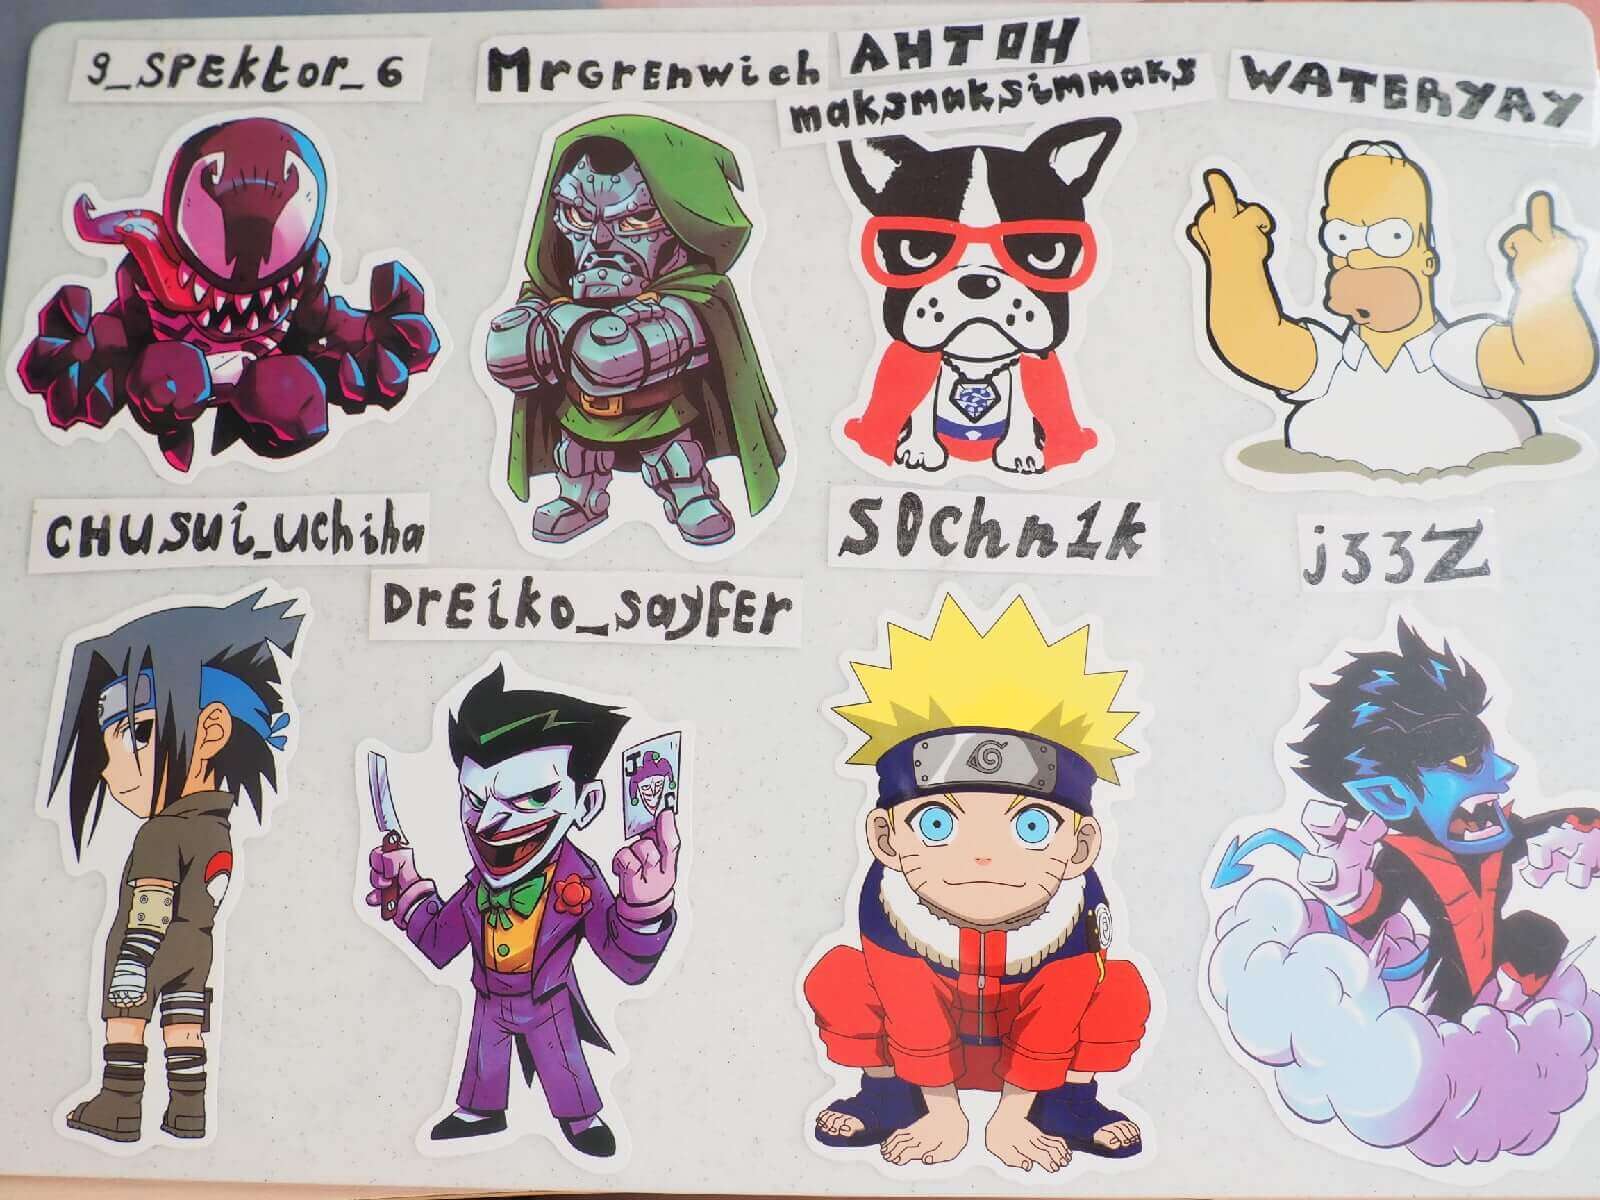 g_SPEKtor_6
MrGrEnwich
АНТОН
maksmaksimmaks
WATERYAY
CHUSUi_UchihA
DrEiko_sayFEr
S0Chn1k
j33Z
J